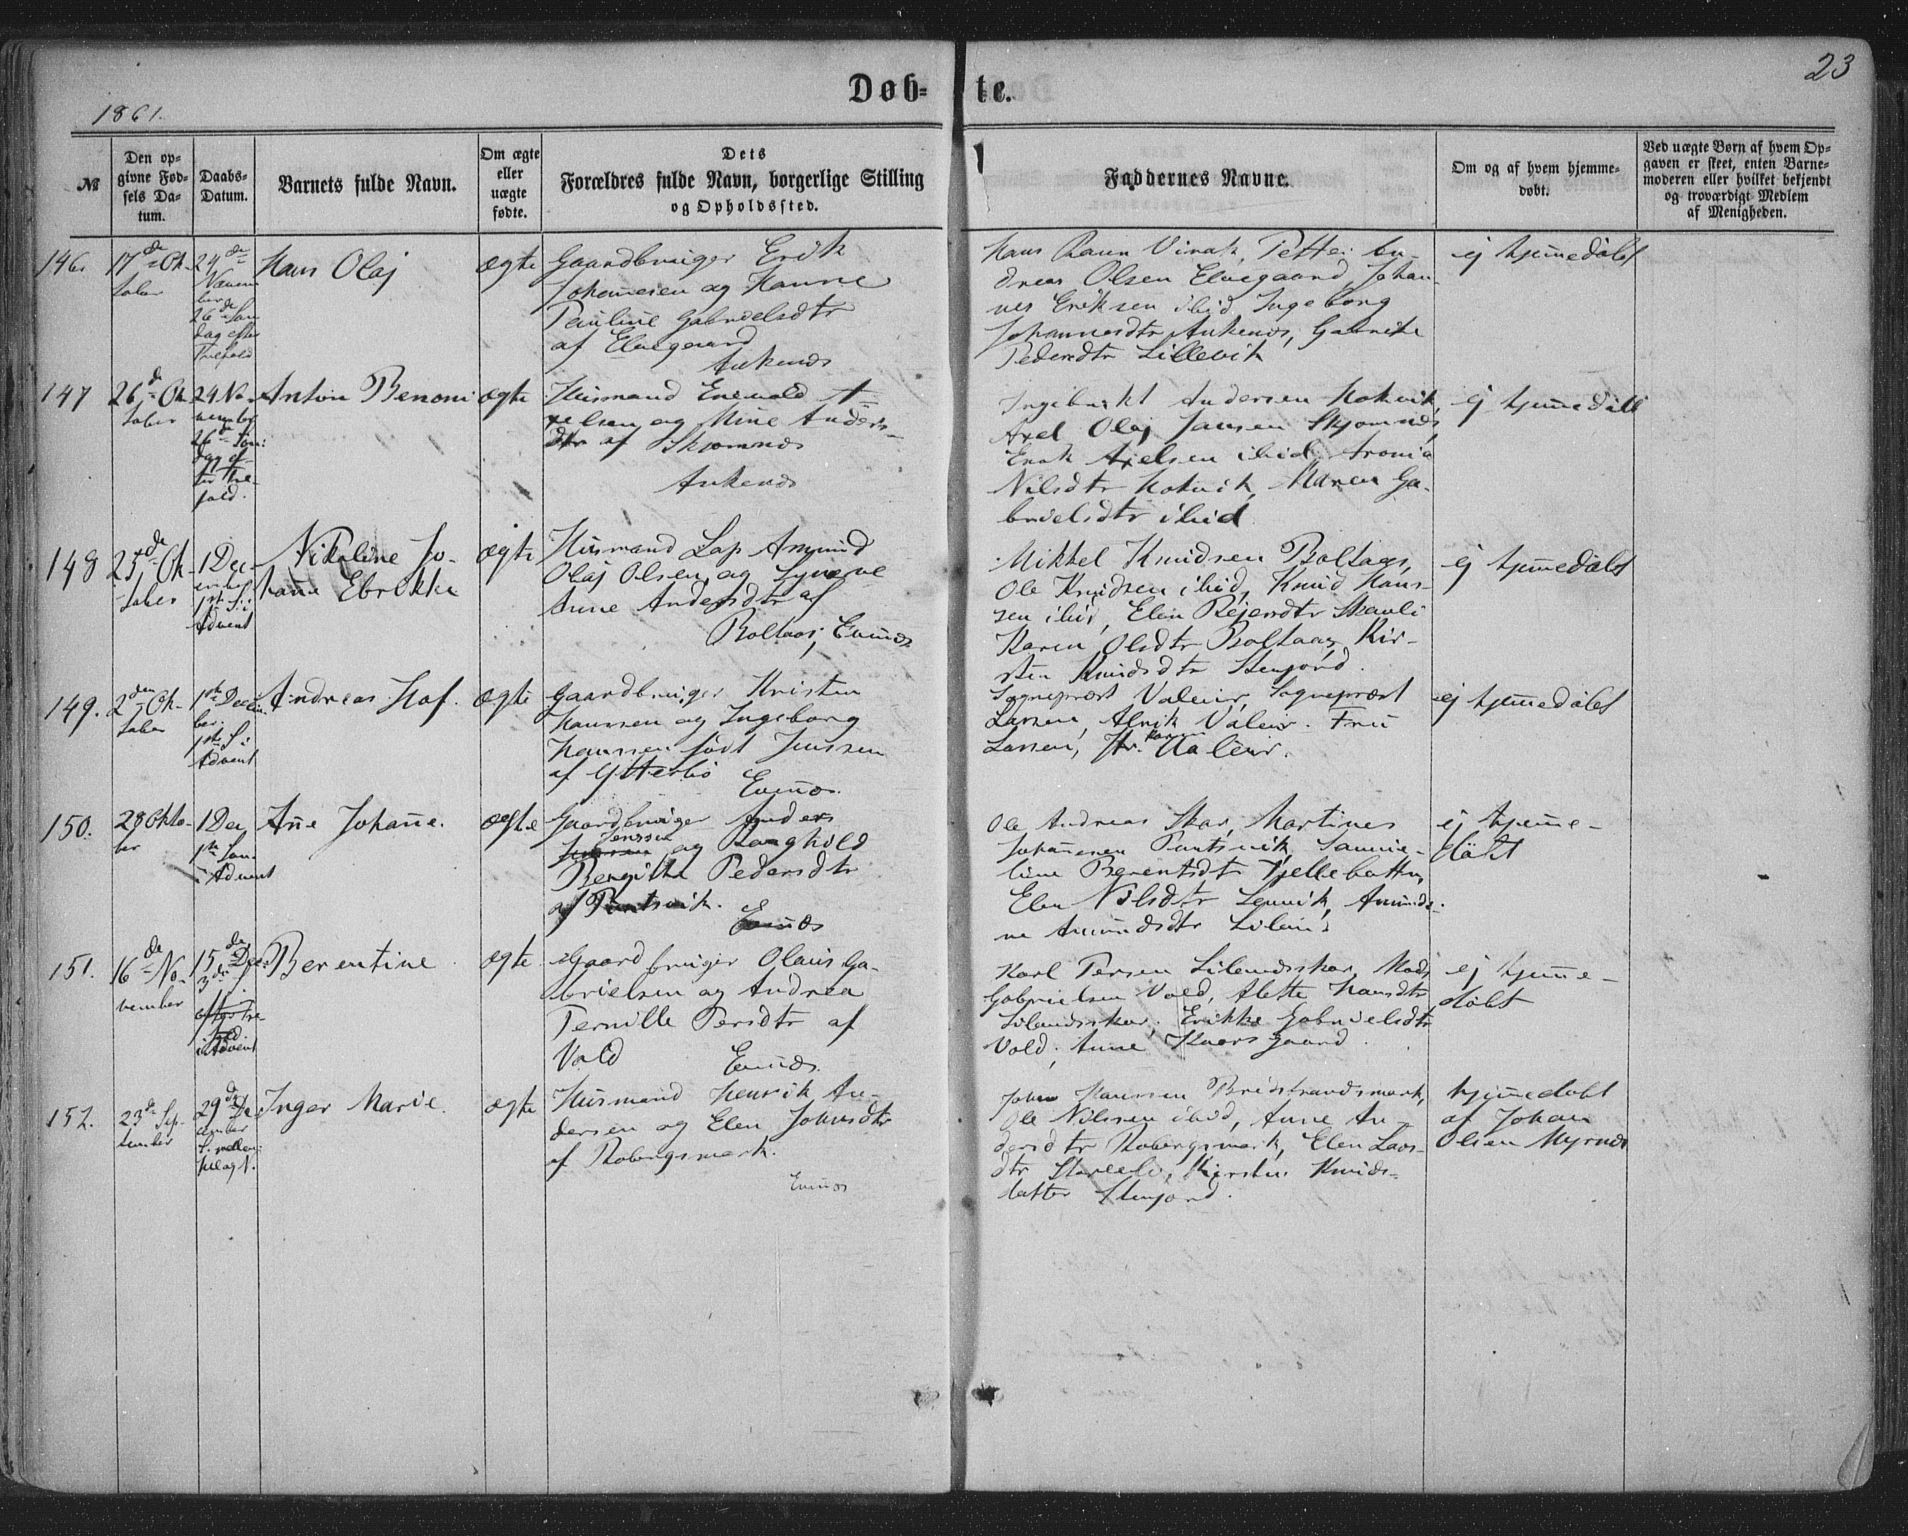 1861.
Døb-
te.
23
№
Den op-
givne Fød-
sels Da-
tum.
Daabs-
Datum.
Barnets fulde Navn.
Om ægte
eller
uægte
fødte.
Dets
Forældres fulde Navn, borgerlige Stilling
og Opholdssted.
Faddernes Navne.
Om og af hvem hjemme-
døbt.
Ved uægte Børn af hvem Op-
gaven er skeet, enten Barne-
moderen eller hvilket bekjendt
og troværdigt Medlem
af Menigheden.
146.
17de Ok-
tober
24de
Novem
ber
26de Søn
dag efter
Trefold
Hans Olaj
ægte
Gaardbruger Erik
Johannesen og Hanne
Pauline Gabrielsdtr
af Elvegaard
Ankenæs
Hans Ravn Virak, Petter An-
dreas Olsen Elvegaard, Johan-
nes Eriksen ibid, Ingeborg
Johannesdtr Ankenæs,
Pedersdtr Lillevik
ej hjemmedøbt
147
26de Ok
tober
24 No-
vember
26de Søn
dag ef-
ter Tre-
fold.
Anton Benoni
ægte
Husmand Enevold A-
xelsen og Mine Anders-
dtr af Skjomnæs
Ankenæs
Ingebrikt Andersen Hokvik,
Axel Olaj Jansen Skjomnæs,
Erik Axelsen ibid, Aronia
Nilsdtr Hokvik, Maren Ga-
brielsdtr ibid
ej hjemmedøbt
148
25de Ok-
tober
1 Dec-
ember
1st S. i
Advent
Nikoline Jo-
hanne Ebrikke
ægte
Husmand Lap Amund
Olaj Olsen og
Anne Andersdtr af
Boltaas, Evenæs
Mikkel Knudsen Boltaas,
Ole Knudsen ibid, Knud Han-
sen ibid, Elen Skavli
Karen Olsdtr Boltaas, Kir-
sten Knudsdtr Stenjord.
ej hjemmedøbt
149.
2den Ok-
tober
1ste Decem
ber.
1ste S. i
Advent
Andreas Hof.
ægte
Gaardbruger Kristen
Hanssen og Ingeborg
Hanssen født Jenssen
af Ytterbø
Evenæs.
Sogneprest Valeur, Sogneprest
Larsen, Alrik Valeur. Fru
Larsen, Valeur.
ej hjemmedøbt
150.
28 Okto-
ber
1 Dec
1ste Søn
i Advent
Ane Johanne.
ægte
Gaardbruger Anders
Jenssen
og Raaghild
Bergitha Pedersdtr
af Pundsvik.
Evenæs
Ole Andreas Skar, Martines
Johannesen Pundsvik,
line Berentsdtr Fjellebotten,
Elen Nilsdtr Lenvik, Amund-
ne Amundsdtr Liland
ej hjemme-
døbt
151.
16de No-
vember
15de Dec
3die S
i Advent
Berentine
ægte
Gaardbruger Olaus Ga-
brielsen og Andrea
Pernille Persdtr af
Vold
Evenæs.
Karl Persen Lilandsskar, Mads
Gabrielsen Vold, Alette Hansdtr
Lilandsskar, Erikke Gabrielsdtr
Vold, Anne Kaarsgaard.
ej hjemme-
døbt
152.
23de Sep-
tember
29de De
cember
S. mellem
Jul og N.
Inger Marie.
ægte
Husmand Henrik An-
dersen og Elen Johnsdtr
af Robergsmark.
Evenæs
John Hanssen Bredstrandsmark,
Ole Nilssen ibid, Anne An-
dersdtr Robergsmark, Elen Lars-
dtr Kirsten Knuds-
datter Stenjord.
hjemmedøbt
af Johan
Olsen Myrnæs